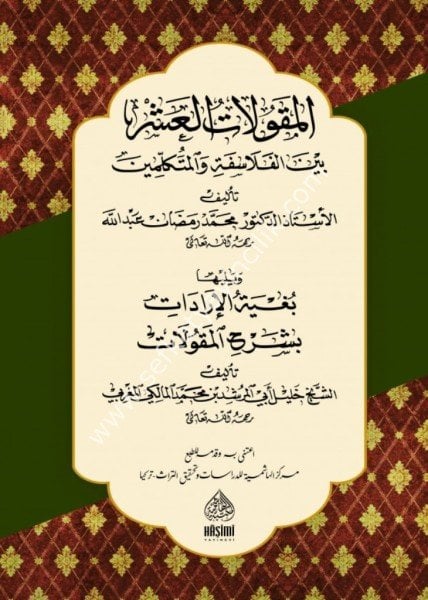 المَقُولَاتُ العَشْرُ
بَيْنَ الفَلَاسِفَةِ وَالمُتَكَلِّمِينَ
تأليف
الأستاذ الدكتور محمد رمضان عبد الله
رحمه الله تعالى
ويليها
بُغْيَةُ الإِرَادَاتِ
بِشَرْحِ المَقُولَاتِ
تأليف
الشيخ خليل أبي المرشد بن محمد المالكي المغربي
رحمه الله تعالى
اعتنى به وقدمه للطبع
مركز الهاشمية للدراسات وتحقيق التراث - تركيا
HÂŞİMİ
YAYINEVİ